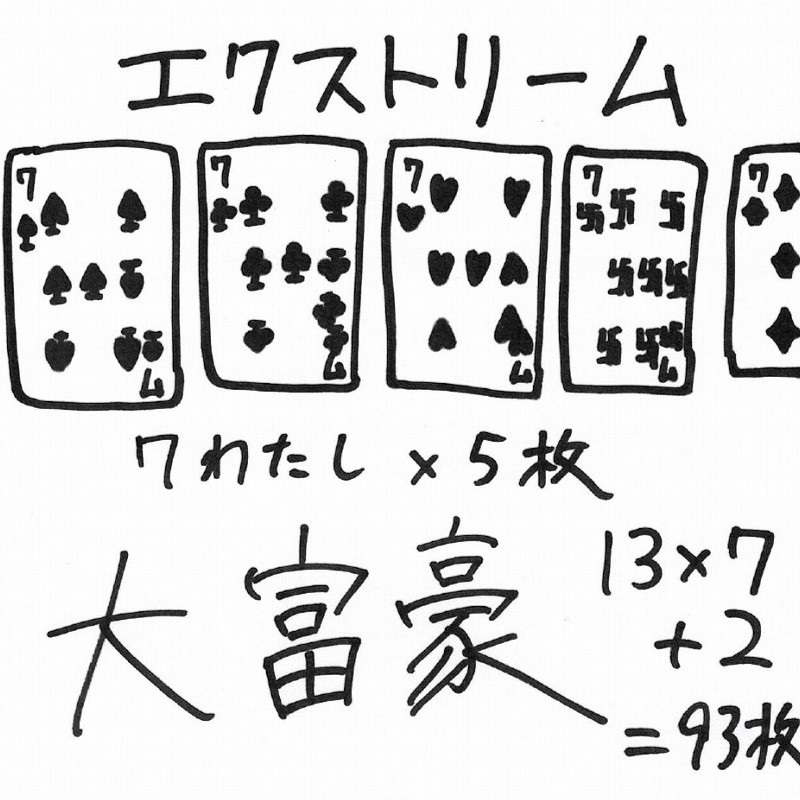 エクストリーム
7 7 7 7 7
7 7 7 7
7わたし×5枚
大富豪
13×7
+2
=93枚